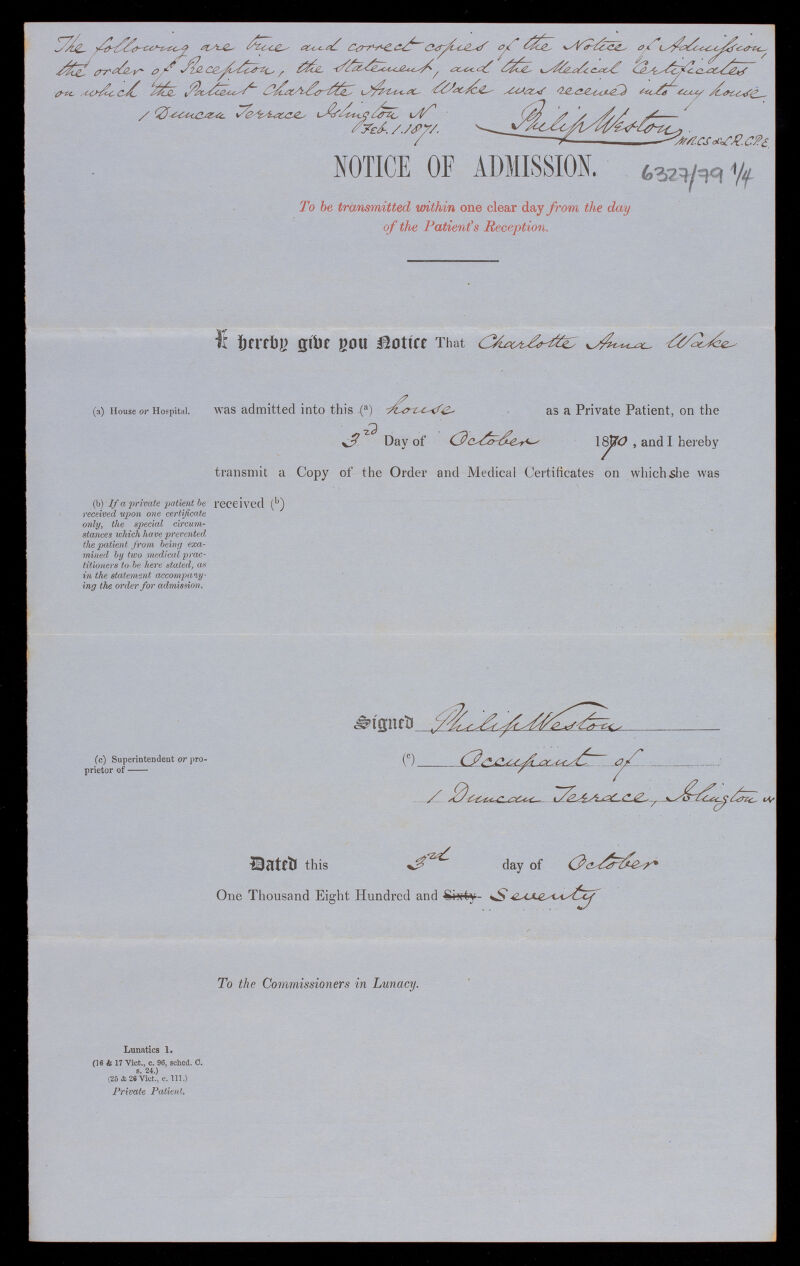 The following are true and correct copies of the Notice of Admission,
the order of Reception, the Statement, and the Medical Certificates
on which the Patient Charlotte Anna Wake was received into my house.
1 Duncan Terrace Islington N
Feb. 1. 1871. Philip Weston
M.R.C.S. & L.R.C.P.E.
NOTICE OF ADMISSION.
6327/79 1/4
To be transmitted within one clear day from the day
of the Patient's Reception.
I hereby give you Notice That Charlotte Anna Wake
(a) House or Hospital.
was admitted into this (a) house as a Private Patient, on the
3rd Day of October 1870, and I hereby
transmit a Copy of the Order and Medical Certificates on which she was
received (b)
(b) If a private patient be
received upon one certificate
only, the special circum-
stances which have prevented
the patient from being exa-
mined by two medical prac-
titioners to be here stated, as
in the statement accompany-
ing the order for admission.
Signed Philip Weston
(c) Superintendent or pro-
prietor of ——
(c) Occupant of
1 Duncan Terrace, Islington N
Dated this 3rd day of October
One Thousand Eight Hundred and Sixty Seventy
To the Commissioners in Lunacy.
Lunatics 1.
(16 & 17 Vict., c. 96, sched. C.
s. 24.)
(25 & 26 Vict., c. 111.)
Private Patient.